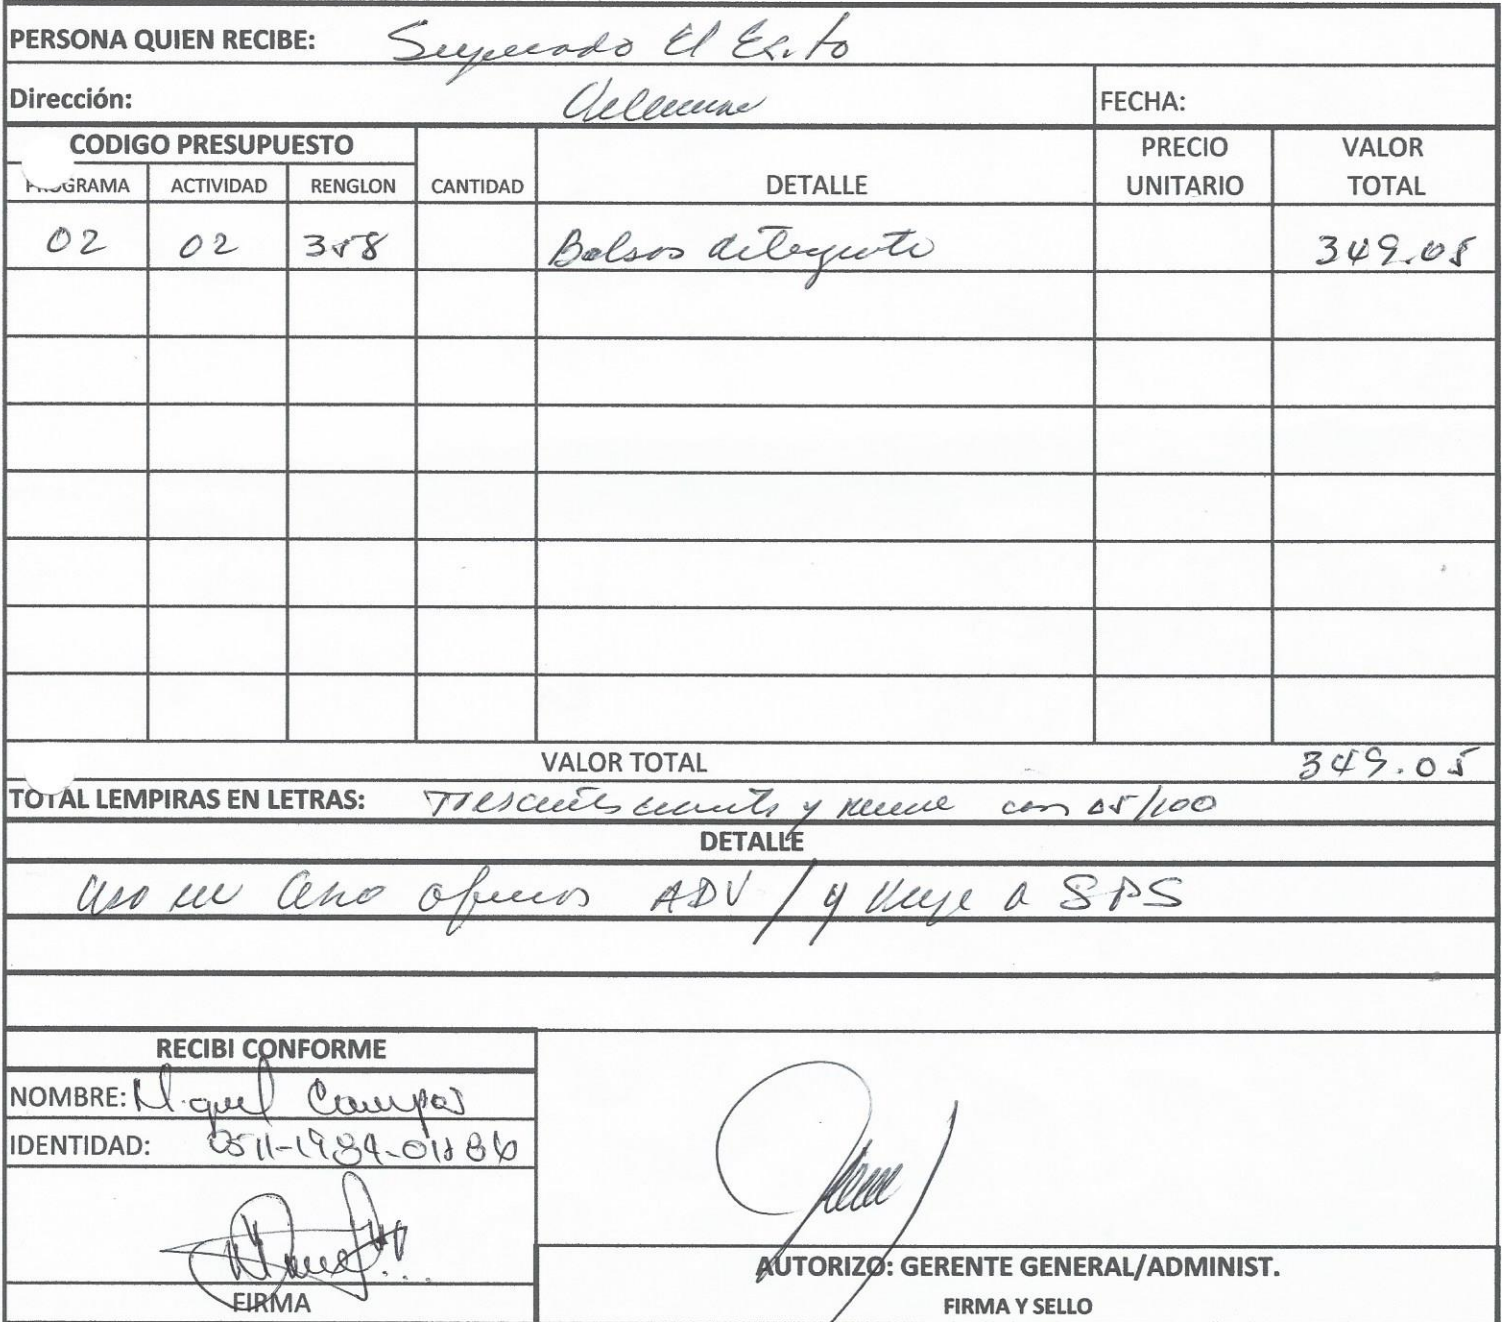 PERSONA QUIEN RECIBE: Supercado El Exito
Dirección:
FECHA:
CODIGO PRESUPUESTO
PROGRAMA ACTIVIDAD RENGLON CANTIDAD DETALLE PRECIO UNITARIO VALOR TOTAL
02 02 358 Bolsas detergente 349.05
VALOR TOTAL 349.05
TOTAL LEMPIRAS EN LETRAS: Trescientos cuarenta y nueve con 05/100
DETALLE
uso en aseo oficinas ADV / y viaje a SPS
RECIBI CONFORME
NOMBRE: Miguel Campos
IDENTIDAD:
FIRMA
AUTORIZO: GERENTE GENERAL/ADMINIST.
FIRMA Y SELLO